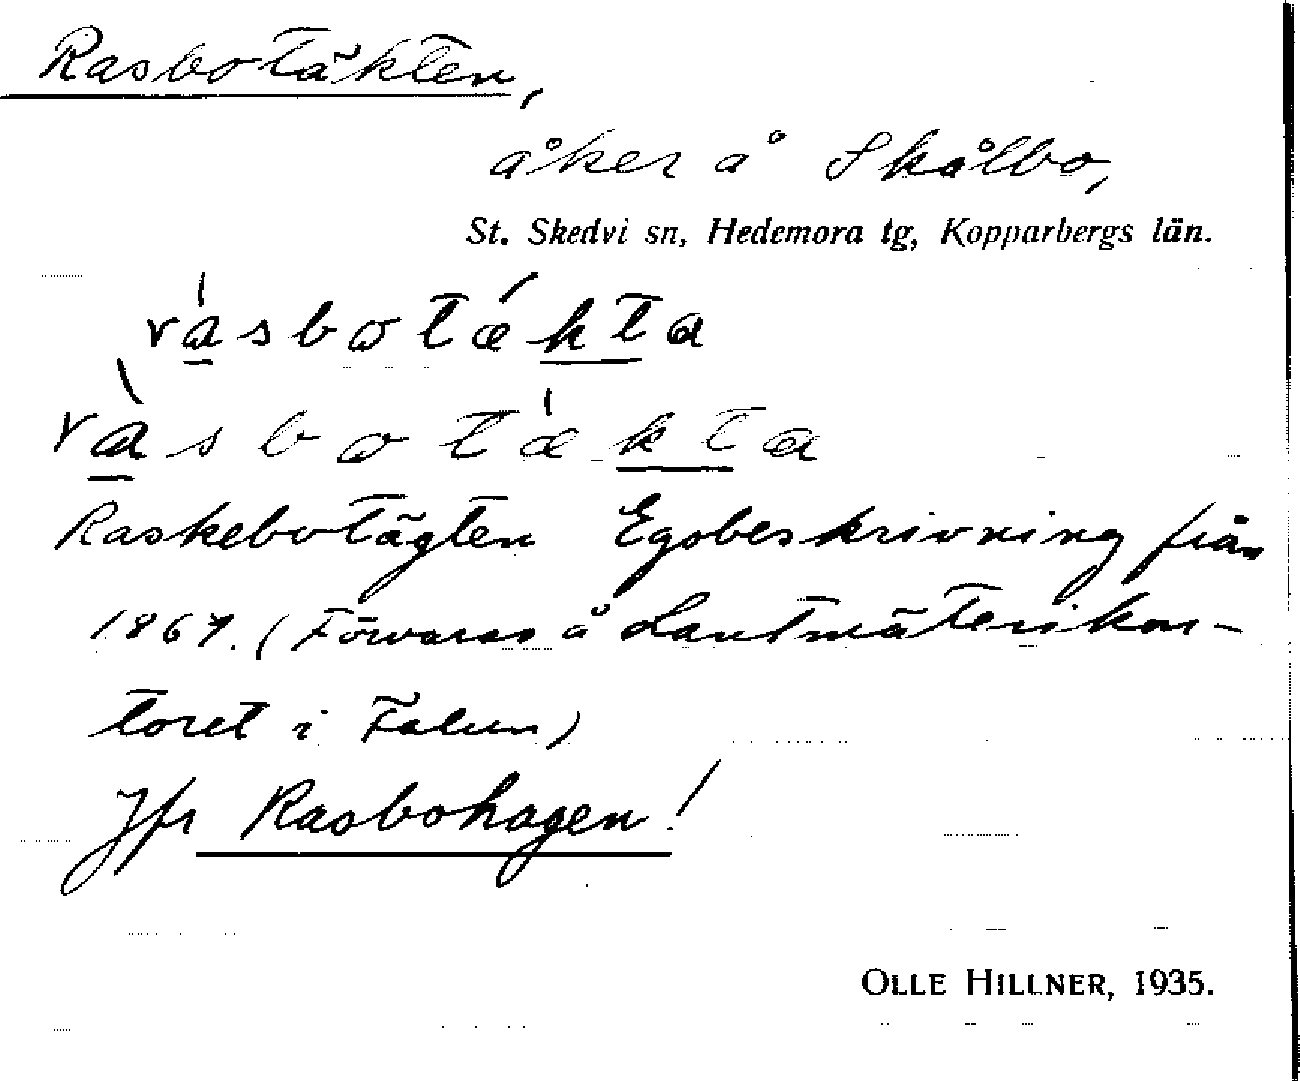 Rasbotäkten,
åker å Skålbo,
St. Skedvi sn, Hedemora tg, Kopparbergs län.
ràsbotǽkta
ràsbotækta
Raskebotägten Egobeskrivning från
1867. (Förvaras å Lantmäterikon-
toret i Falun)
Jfr Rasbohagen!
OLLE HILLNER, 1935.